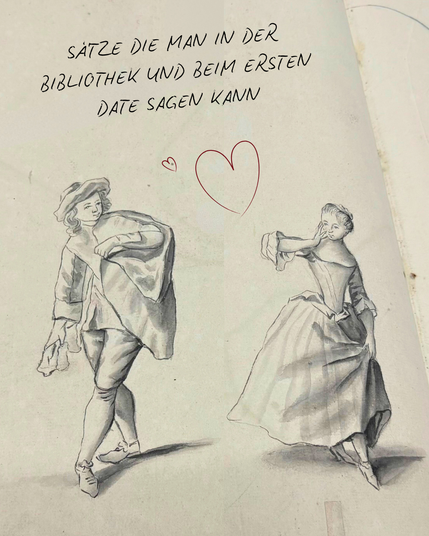 SÄTZE DIE MAN IN DER
BIBLIOTHEK UND BEIM ERSTEN
DATE SAGEN KANN